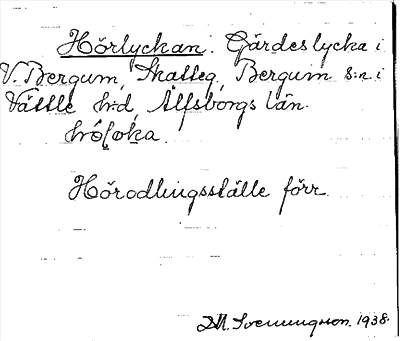 Hörlyckan. Gärdeslycka i
V. Bergum, Skatteg., Bergum s:n i
Vättle h:d, Älfsborgs län.
Hörodlingsställe förr.
M. Svenungson. 1938.